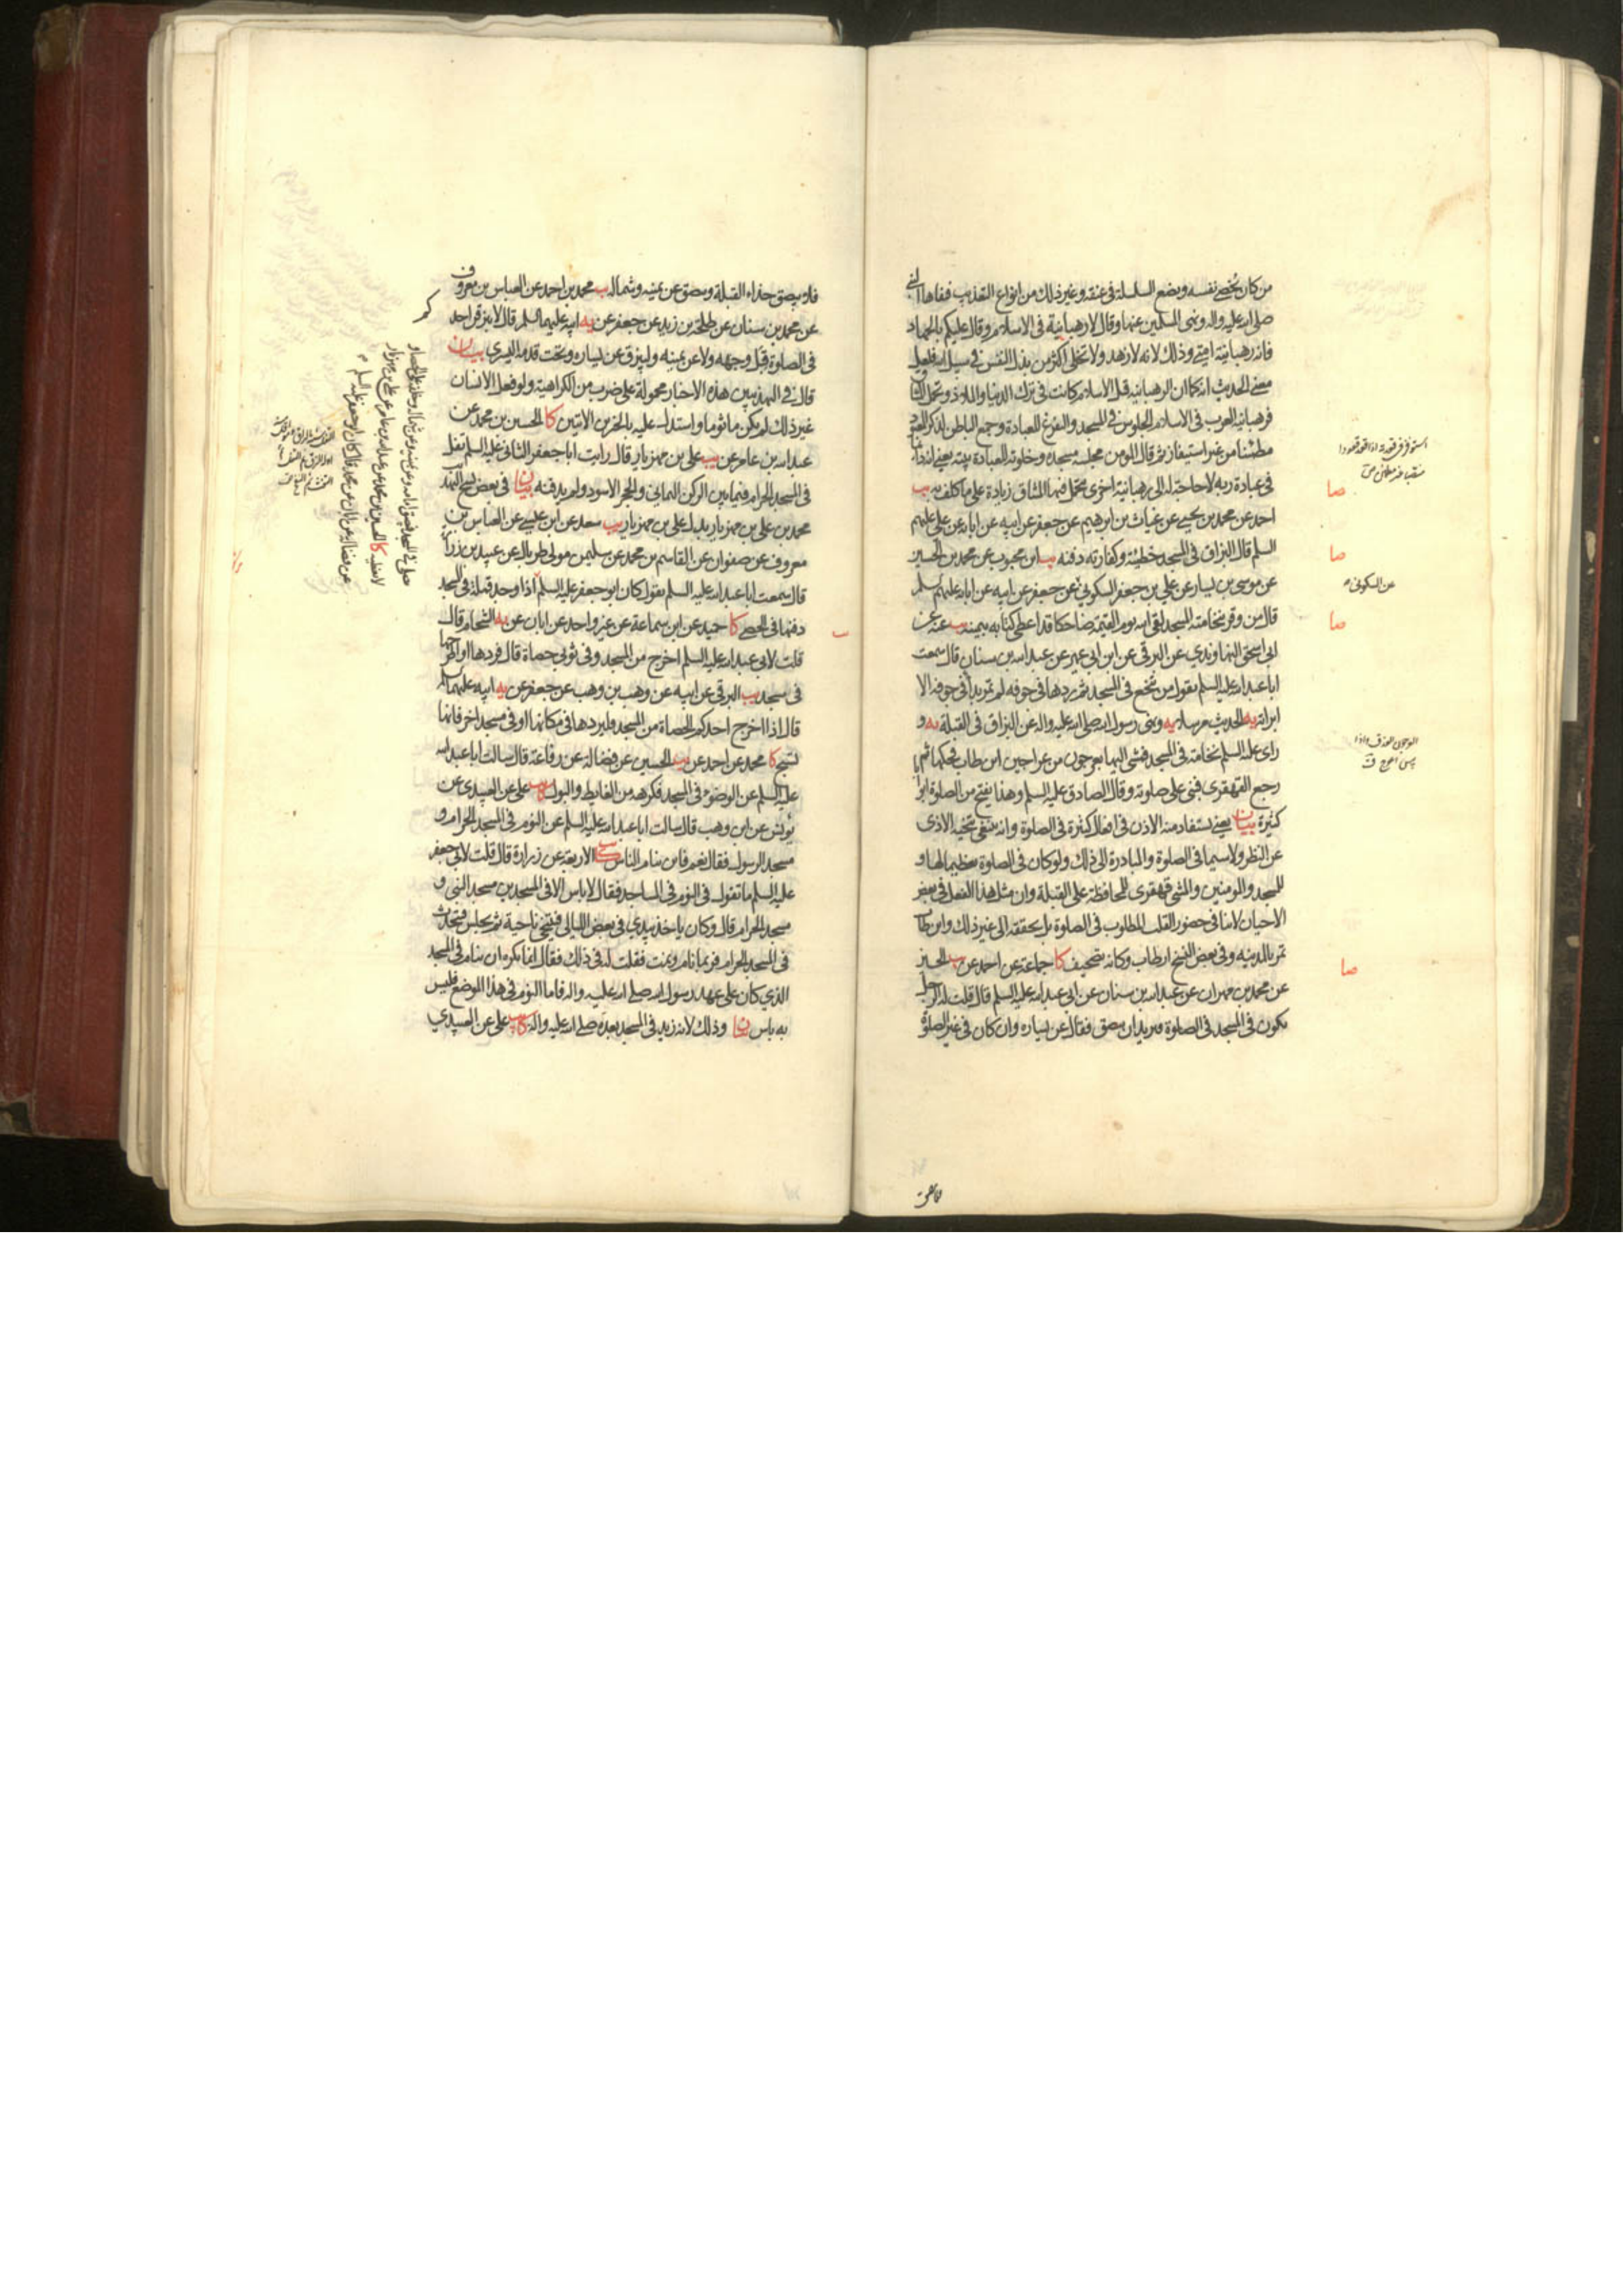 من كان يخصى نفسه ويضع السلسلة فى عنقه وغير ذلك من انواع التعذيب فنفاها النبى
صلى الله عليه واله ونهى المسلمين عنها وقال لا رهبانية فى الاسلام وقال عليكم بالجهاد
فانه رهبانية امتى وذلك لانه لا زهد ولا تخلى اكثر من بذل النفس فى سبيل الله فلعل
معنى الحديث انه كما ان الرهبانيه قبل الاسلام كانت فى ترك الدنيا والملاذ وتحمل
فرهبانية العرب فى الاسلام الجلوس فى المسجد والتفرغ للعبادة وجمع الباطن لذكر
مطمئنا من غير استيفاز ثم قال المومن مجلسه مسجده وخلوته للعبادة بيته يعنى اذ
فى عبادة ربه لا حاجة له الى رهبانية اخرى يتحمل فيها المشاق زيادة على ما كلف به يب
احمد عن محمد بن يحيى عن غياث بن ابرهيم عن جعفر عن ابيه عن ابائه عن على عليهم
السلم قال البزاق فى المسجد خطيئة وكفارته دفنه يب ابن محبوب عن محمد بن الحسين
عن موسى بن يسار عن على بن جعفر السكونى عن جعفر عن ابيه عن ابائه عليهم السلم
قال من وقر بنخامته المسجد لقى الله يوم القيمة ضاحكا قد اعطى كتابه بيمينه يب عنه عن
ابى اسحق النهاوندى عن البرقى عن ابن ابى عمير عن عبد الله بن سنان قال سمعت
ابا عبد الله عليه السلم يقول من تنخع فى المسجد ثم ردها فى جوفه لم تمر بداء فى جوفه الا
ابراته يه الحديث مرسلا يه ونهى رسول الله صلى الله عليه واله عن البزاق فى القبلة يه و
راى عليه السلم نخامة فى المسجد فمشى اليها بعرجون من عراجين ابن طاب فحكها ثم
رجع القهقرى فبنى على صلوته وقال الصادق عليه السلم وهذا يفتح من الصلوة ابوابا
كثيرة بيان يعنى يستفاد منه الاذن فى افعال كثيرة فى الصلوة وانه ينبغى تنحية الاذى
عن النظر ولا سيما فى الصلوة والمبادرة الى ذلك ولو كان فى الصلوة تعظيما لها و
للمسجد والمومنين والمشى قهقرى للمحافظة على القبلة وان مثل هذا الفعل فى بعض
الاحيان لا ينافى حضور القلب المطلوب فى الصلوة بل يحققه الى غير ذلك وابن طاب
تمر بالمدينه وفى بعض النسخ ارطاب وكانه تصحيف كا جماعة عن احمد عن يب الحسين
عن محمد بن مهران عن عبد الله بن سنان عن ابى عبد الله عليه السلم قال قلت له الرجل
يكون فى المسجد فى الصلوة فيريد ان يبصق فقال عن يساره وان كان فى غير الصلوة
صا
صا
عن السكونى
صا
صا
فلا يبصق حذاء القبلة ويبصق عن يمينه وشماله يب محمد بن احمد عن العباس بن معروف
عن محمد بن سنان عن طلحة بن زيد عن جعفر عن يه ابيه عليهما السلم قال لا يبزقن احد
فى الصلوة قبل وجهه ولا عن يمينه وليبزق عن يساره وتحت قدمه اليسرى بيان
قال فى التهذيبين هذه الاخبار محمولة على ضرب من الكراهية ولو فعل الانسان
غير ذلك لم يكن ماثوما واستدل عليه بالخبرين الاتيين كا الحسين بن محمد عن
عبد الله بن عامر عن يب على بن مهزيار قال رايت ابا جعفر الثانى عليه السلم تفل
فى المسجد الحرام فيما بين الركن اليمانى والحجر الاسود ولم يدفنه بيان فى بعض نسخ التهذيب
محمد بن على بن مهزيار بدل على بن مهزيار يب سعد عن ابن عيسى عن العباس بن
معروف عن صفوان عن القاسم بن محمد عن سليمن مولى طربال عن عبيد بن زرارة
قال سمعت ابا عبد الله عليه السلم يقول كان ابو جعفر عليه السلم اذا وجد قملة فى المسجد
دفنها فى الحصى كا حميد عن ابن سماعة عن غير واحد عن ابان عن يه الشحام قال
قلت لابى عبد الله عليه السلم اخرج من المسجد وفى ثوبى حصاة قال فردها او اطرحها
فى مسجد يب البرقى عن ابيه عن وهب بن وهب عن جعفر عن يه ابيه عليهما السلم
قال اذا اخرج احدكم الحصاة من المسجد فليردها فى مكانها او فى مسجد اخر فانها
تسبح كا محمد عن احمد عن يب الحسين عن فضالة عن رفاعة قال سالت ابا عبد الله
عليه السلم عن الوضوء فى المسجد فكرهه من الغايط والبول كا يب على عن العبيدى عن
يونس عن ابن وهب قال سالت ابا عبد الله عليه السلم عن النوم فى المسجد الحرام و
مسجد الرسول فقال نعم فاين ينام الناس كا يب الاربعة عن زرارة قال قلت لابى جعفر
عليه السلم ما تقول فى النوم فى المساجد فقال لا باس الا فى المسجدين مسجد النبى و
مسجد الحرام قال وكان ياخذ بيدى فى بعض الليالى فيتنحى ناحية ثم يجلس فيتحدث
فى المسجد الحرام فربما نام ونمت فقلت له فى ذلك فقال انما يكره ان ينام فى المسجد
الذى كان على عهد رسول الله صلى الله عليه واله فاما النوم فى هذا الموضع فليس
به باس بيان وذلك لانه زيد فى المسجد بعده صلى الله عليه واله كا يب على عن العبيدى